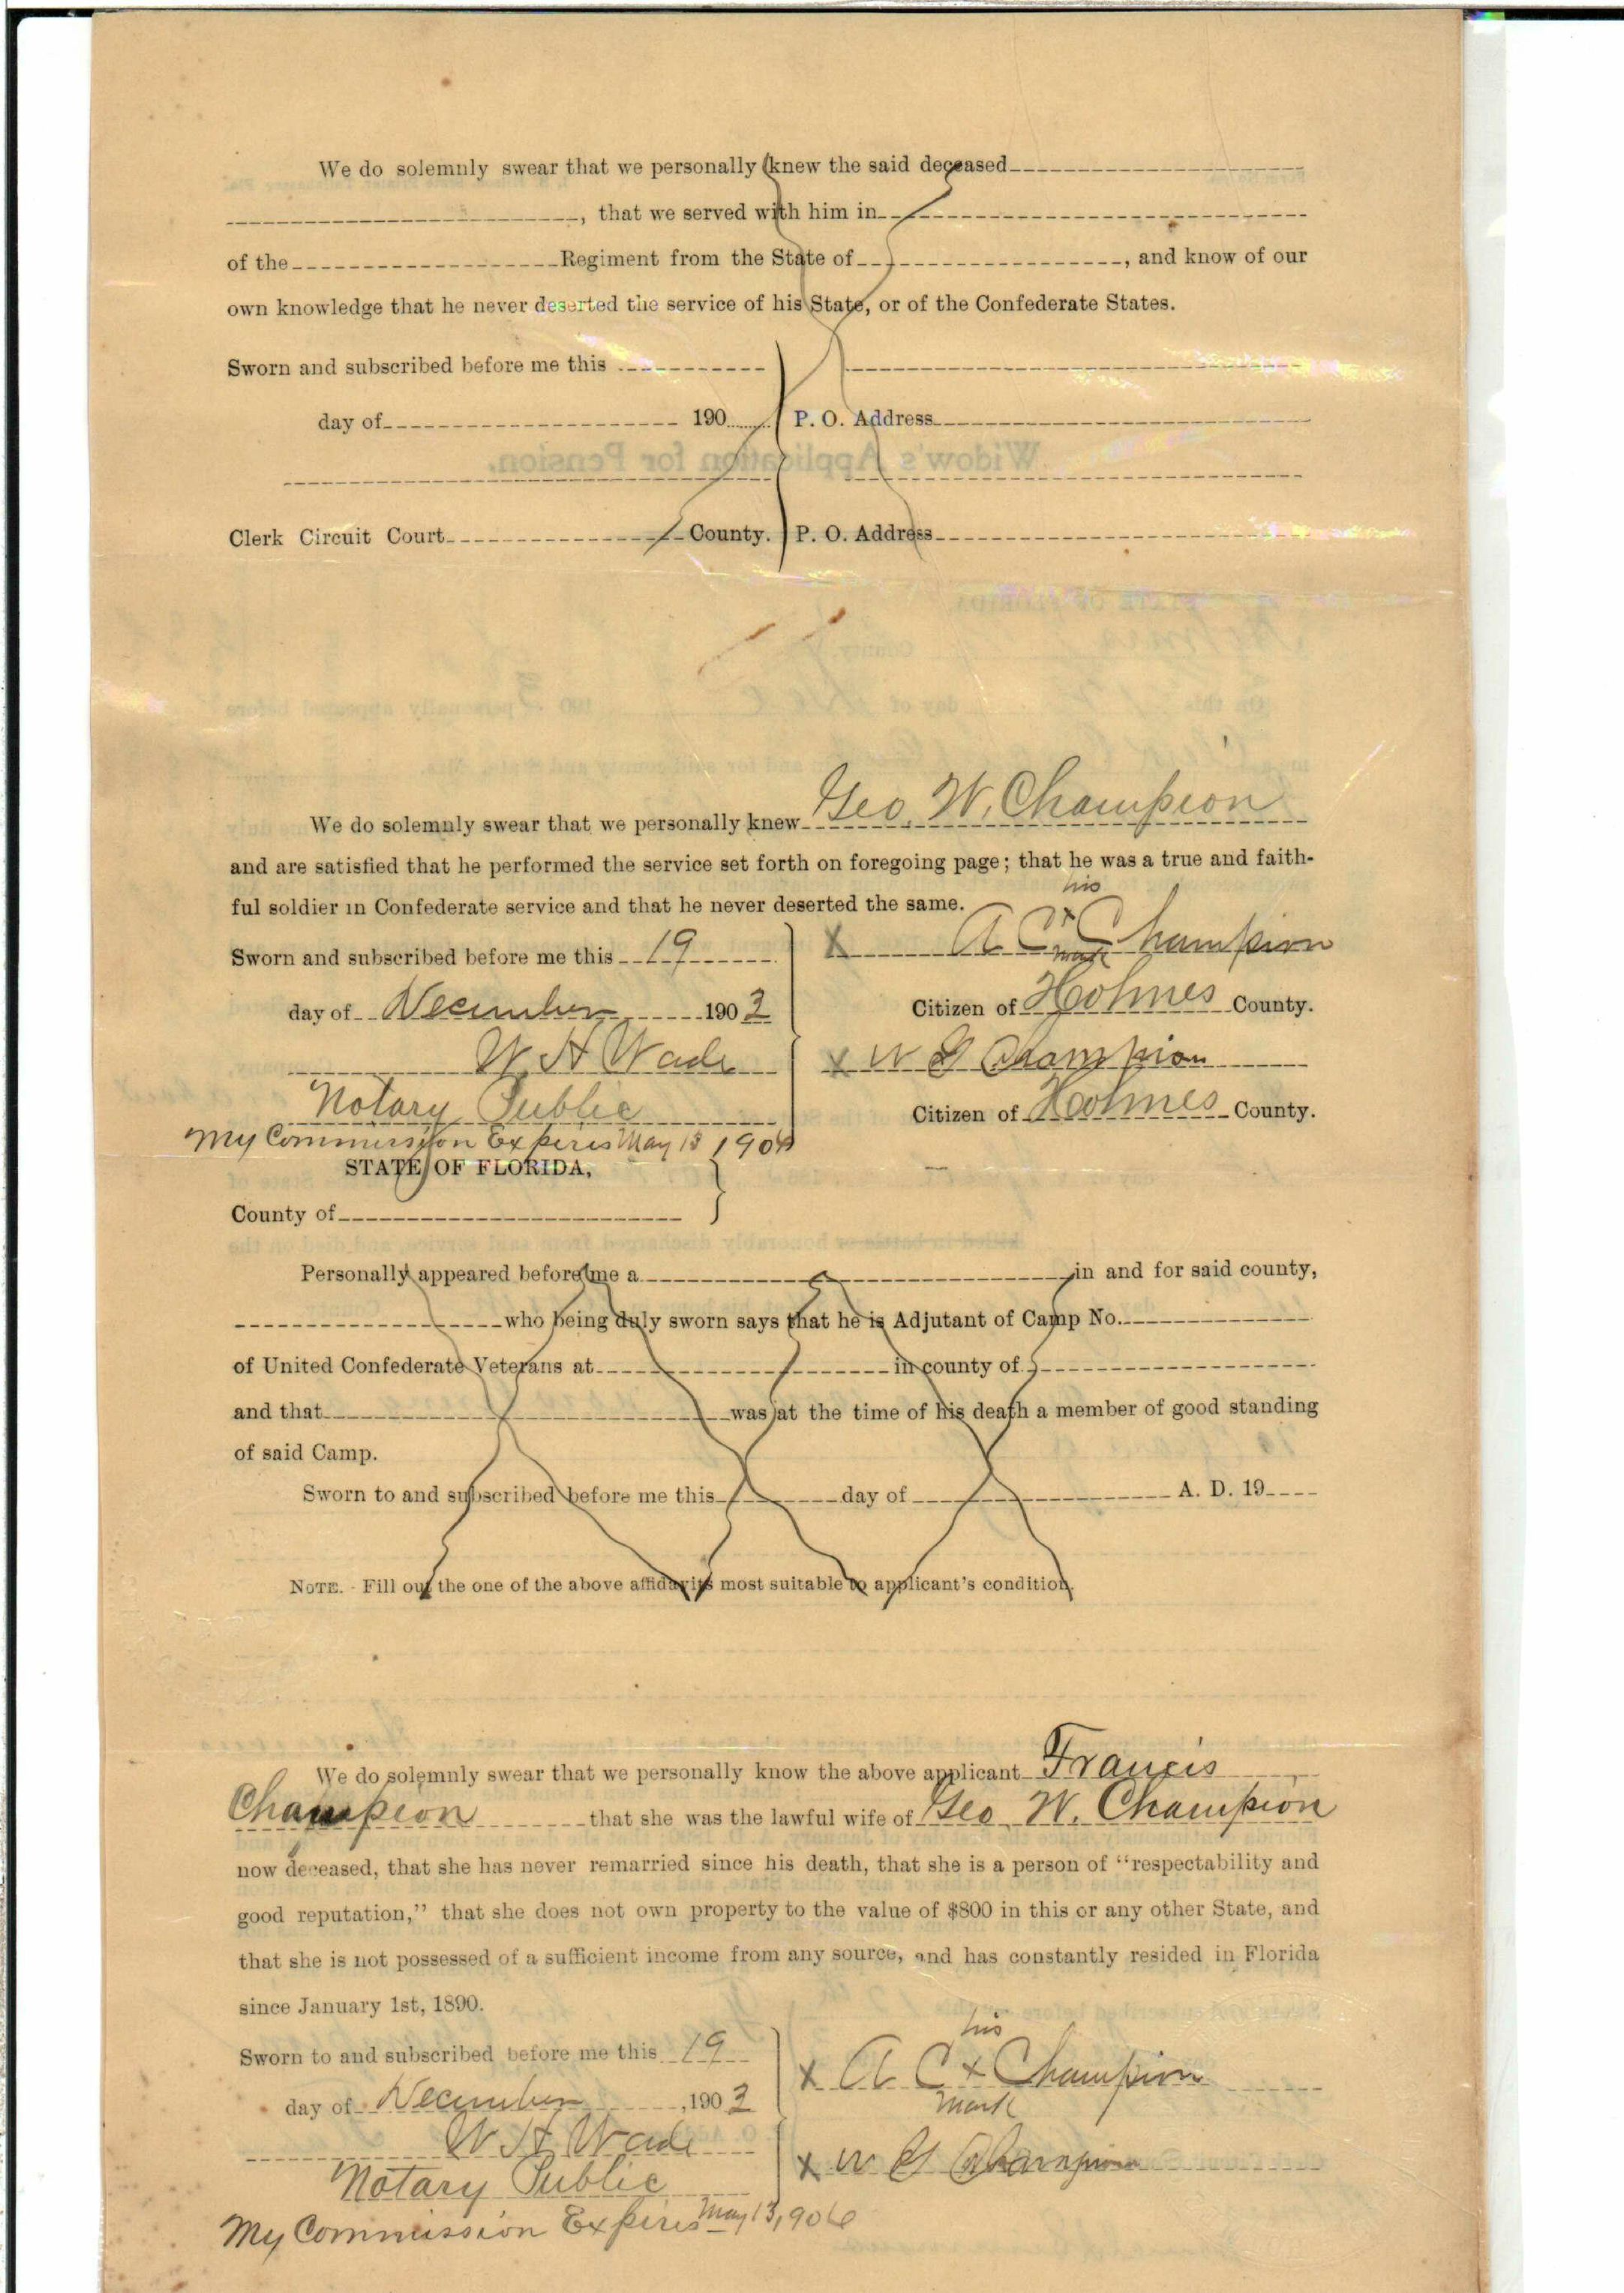 We do solemnly swear that we personally knew the said deceased
, that we served with him in
of the Regiment from the State of , and know of our
own knowledge that he never deserted the service of his State, or of the Confederate States.
Sworn and subscribed before me this
day of 190 P. O. Address
Widow's Application for Pension.
Clerk Circuit Court County. P. O. Address
STATE OF FLORIDA
We do solemnly swear that we personally knew Geo. W. Champion
and are satisfied that he performed the service set forth on foregoing page; that he was a true and faith-
ful soldier in Confederate service and that he never deserted the same.
his
Sworn and subscribed before me this 19 x A C x Champion
mark
day of December 1903 Citizen of Holmes County.
W. H Wade x W G Champion
Notary Public Citizen of Holmes County.
My Commission Expires May 13 1906
STATE OF FLORIDA,
County of
Personally appeared before me a in and for said county,
who being duly sworn says that he is Adjutant of Camp No.
of United Confederate Veterans at in county of
and that was at the time of his death a member of good standing
of said Camp.
Sworn to and subscribed before me this day of A. D. 19
NOTE. - Fill out the one of the above affidavits most suitable to applicant's condition.
We do solemnly swear that we personally know the above applicant Francis
Champion that she was the lawful wife of Geo. W. Champion
now deceased, that she has never remarried since his death, that she is a person of "respectability and
good reputation," that she does not own property to the value of $800 in this or any other State, and
that she is not possessed of a sufficient income from any source, and has constantly resided in Florida
since January 1st, 1890.
his
Sworn to and subscribed before me this 19 x A C x Champion
mark
day of December, 1903
W. H. Wade x W G Champion
Notary Public
My Commission Expires May 13, 1906